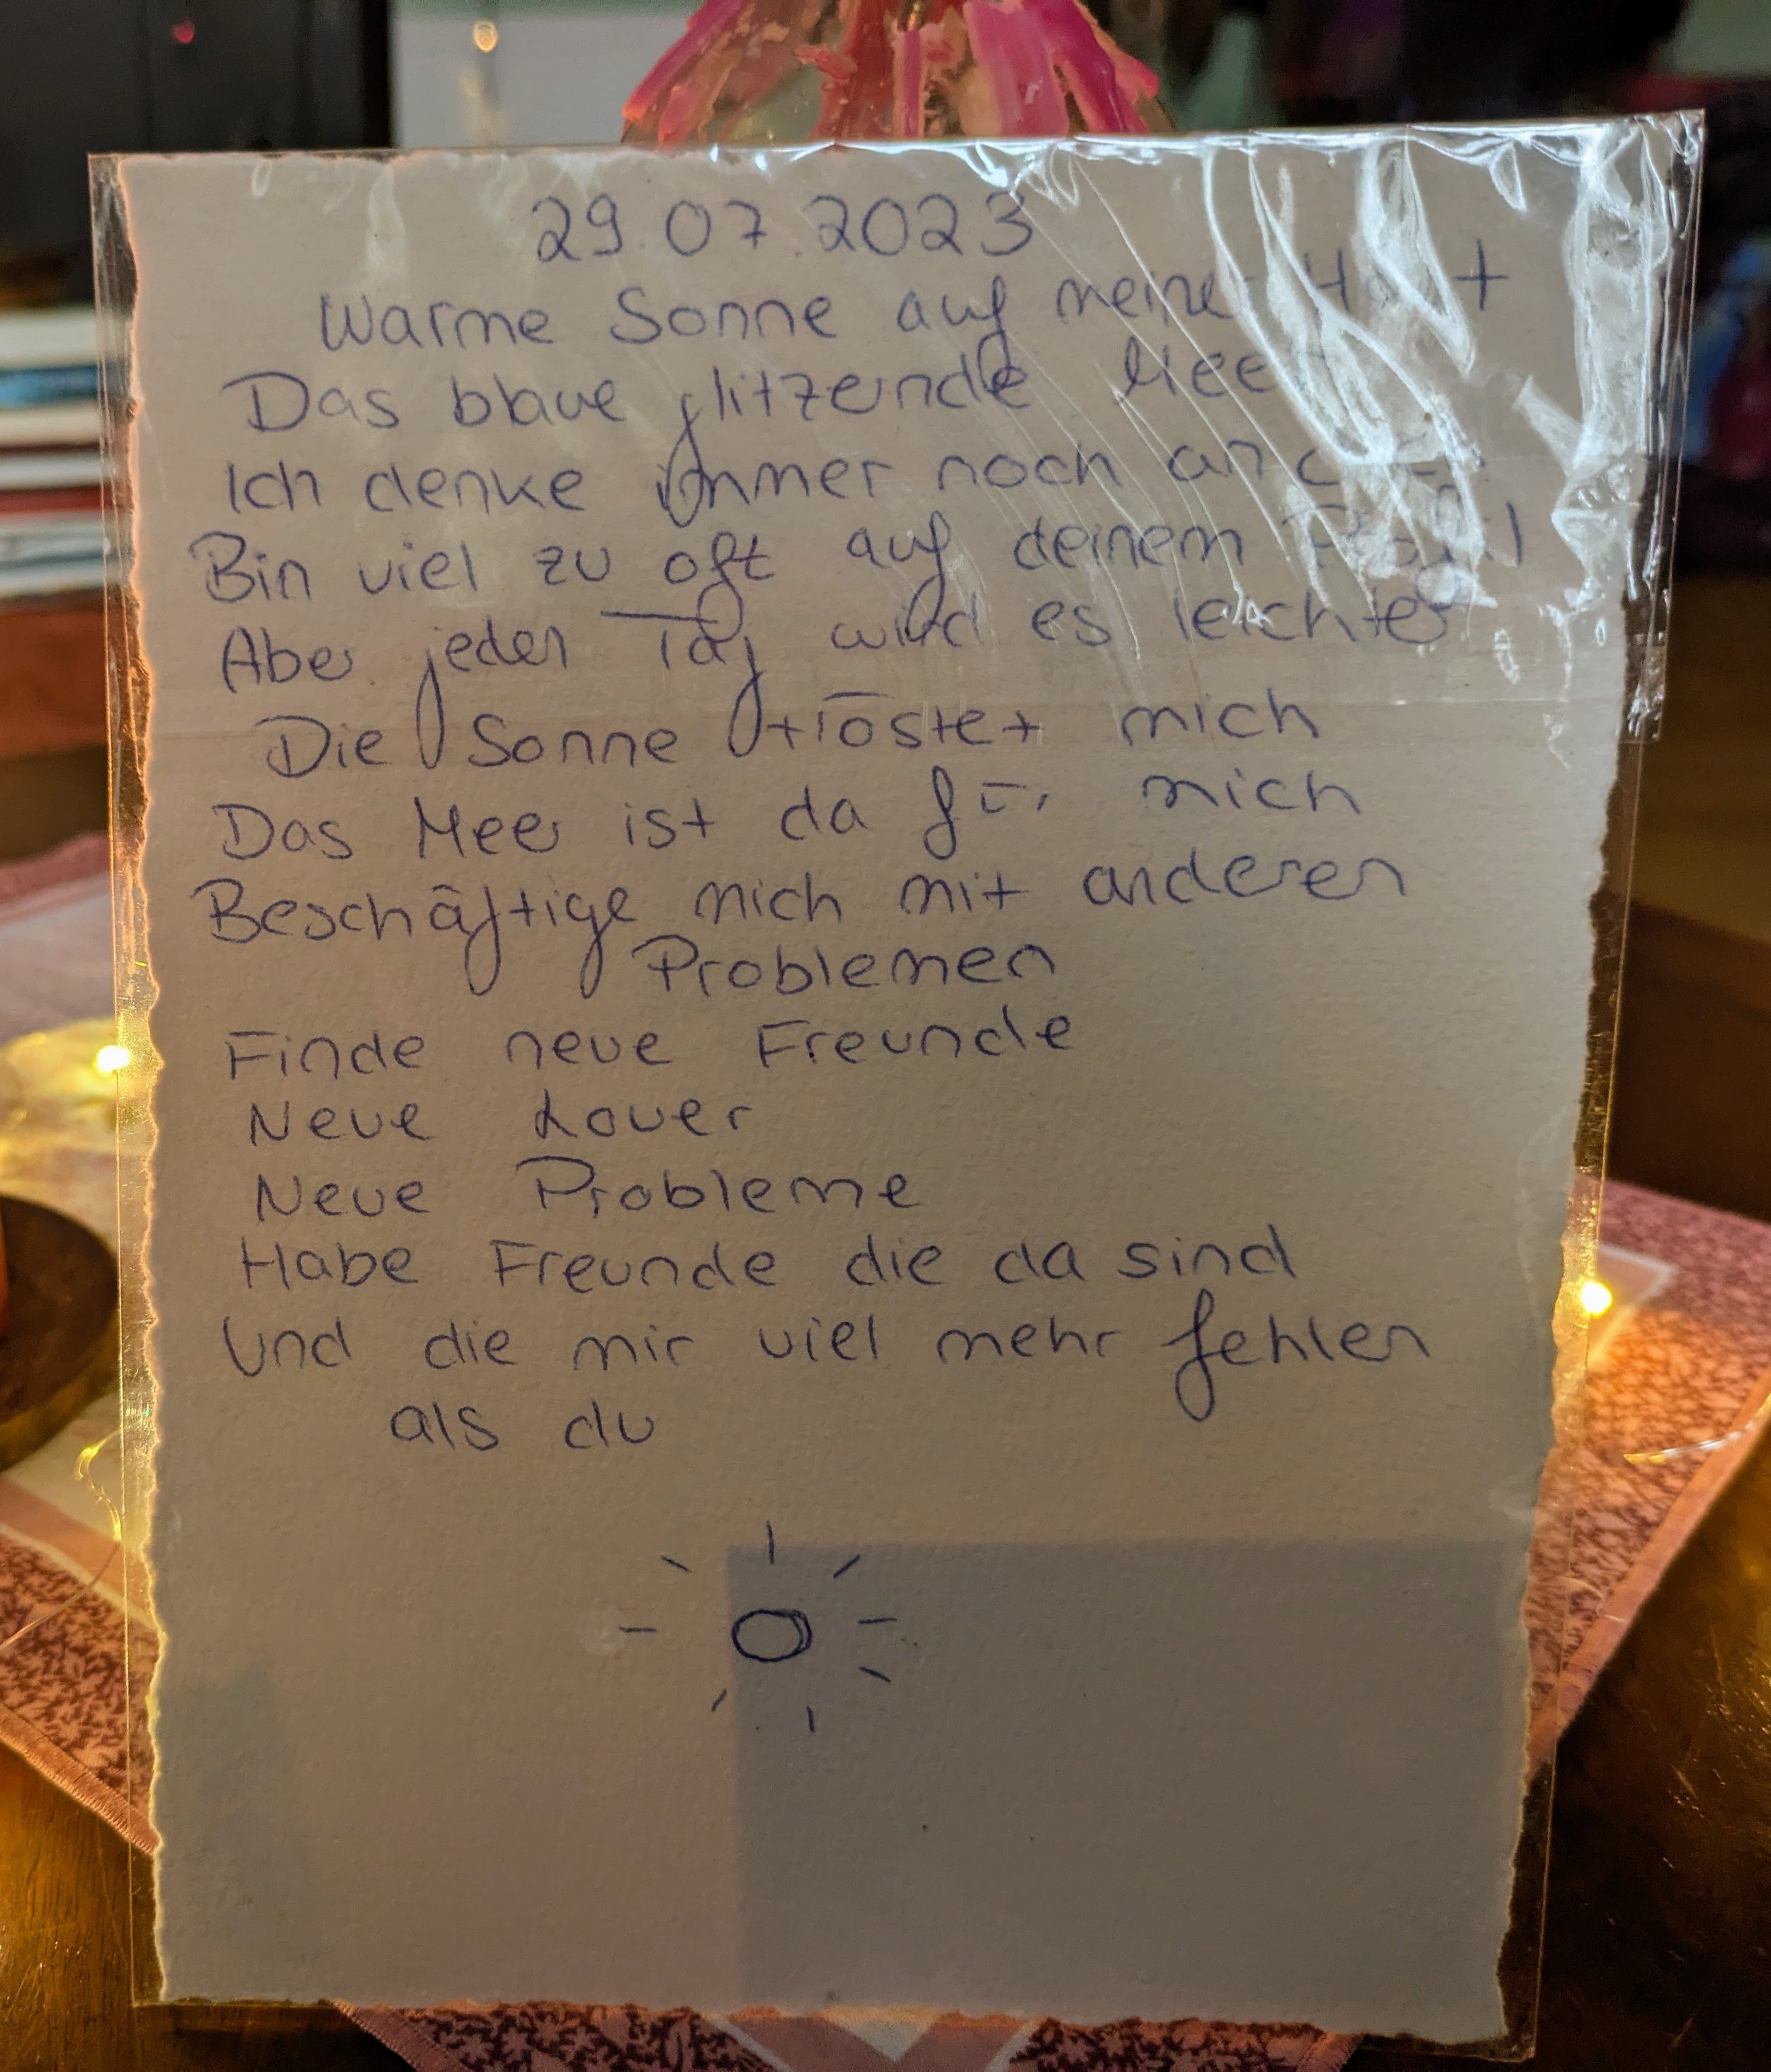 29.07.2023
Warme Sonne auf meiner Haut
Das blaue glitzernde Meer
Ich denke immer noch an
Bin viel zu oft auf deinem Profil
Aber jeden Tag wird es leichter
Die Sonne tröstet mich
Das Meer ist da für mich
Beschäftige mich mit anderen
Problemen
Finde neue Freunde
Neue Lover
Neue Probleme
Habe Freunde die da sind
Und die mir viel mehr fehlen
als du